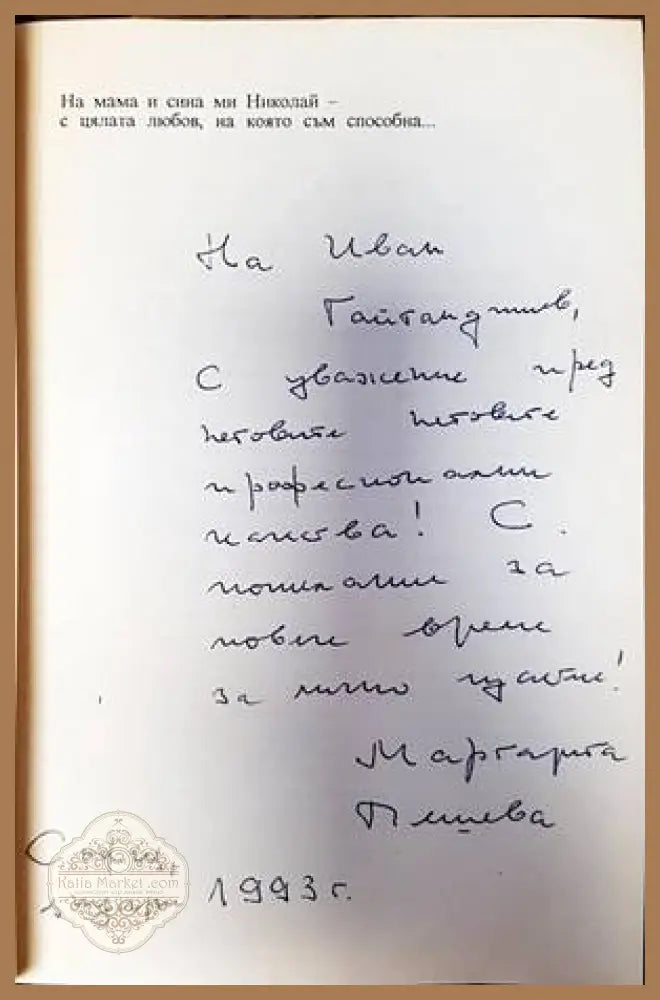 На мама и сина ми Николай –
с цялата любов, на която съм способна...
На Иван
Гайтанджиев,
С уважение пред
неговите неговите
професионални
качества! С
пожелание за
повече време
за лично щастие!
Маргарита
Пешева
1993 г.
Katia Market .com